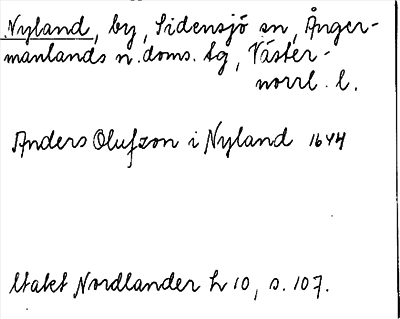 Nyland, by, Sidensjö sn, Ånger-
manlands n. doms. tg, Väster-
norrl. l.
Anders Olufzon i Nyland 1644
Utakt Nordlander L 10, s. 107.